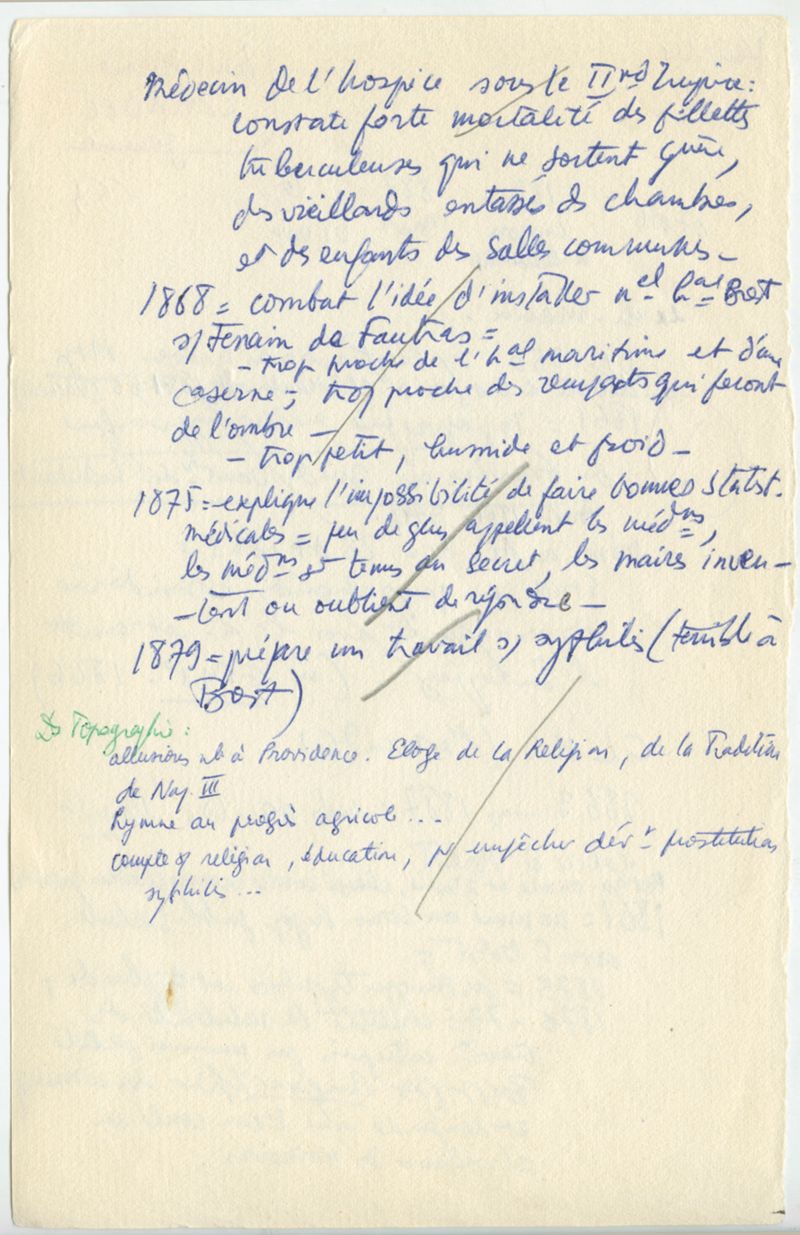 Médecin de l'hospice sous le IInd Empire :
constate forte mortalité des fillettes
tuberculeuses qui ne sortent guère,
des vieillards entassés ds chambres,
et des enfants des salles communes –
1868 = combat l'idée d'installer nel hal Brest
s/ Terrain de Fautras =
– trop proche de l'hal maritime et d'une
caserne –, trop proche des remparts qui feront
de l'ombre –
– trop petit, humide et froid –
1875 = explique l'impossibilité de faire bonnes statist.
médicales = peu de gens appellent les médns,
les médns st tenus au secret, les maires inven-
-tent ou oublient de répondre –
1879 = prépare un travail s/ syphilis (terrible à
Brest)
Ds Topographie :
allusions nb à Providence. Eloge de la Religion, de la Tradition
de Nap. III
Hymne au progrès agricole...
compte s/ religion, éducation, pr empêcher dévt prostitution
syphilis...